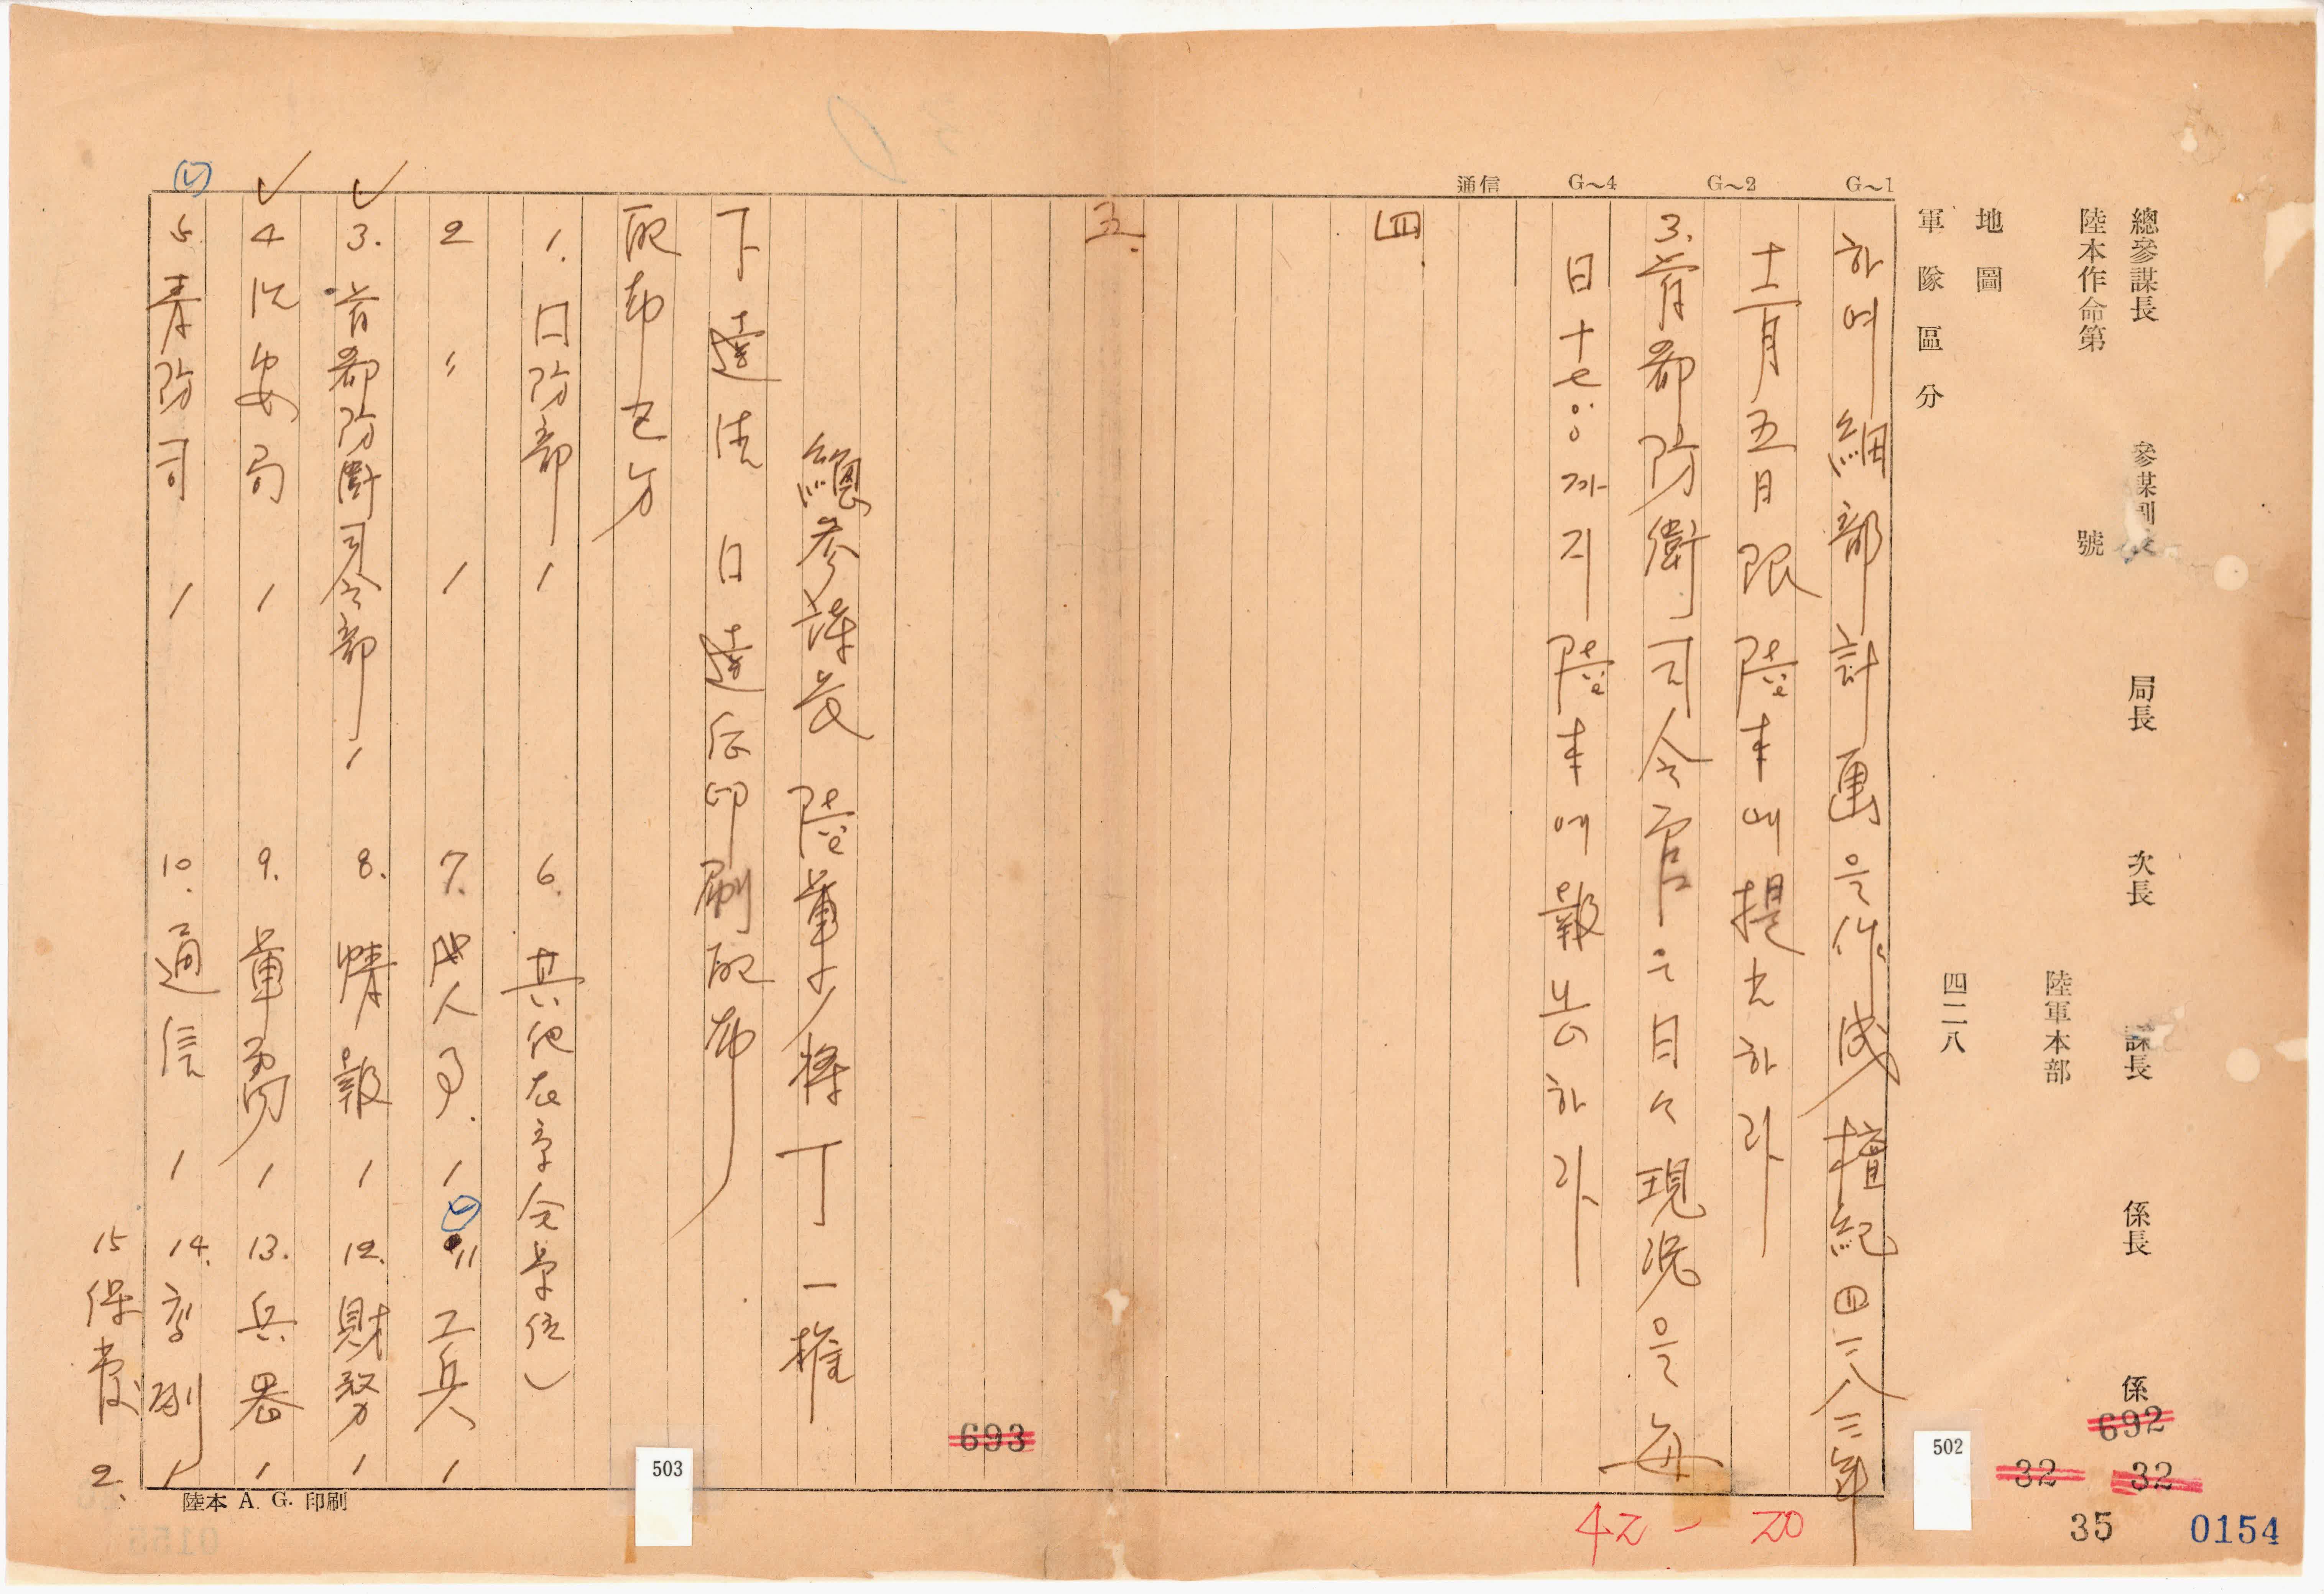 總參謀長 參謀副長 局長 次長 課長 係長 係
陸本作命第 號
陸軍本部
地圖
四二八
軍隊區分
G~1
G~2
G~4
通信
하여 細部計画을 作成 檀紀 四二八三年
十二月五日限 陸本에 提出하라
3. 首都防衛司令官은 日々現況을 每
日 十七:00까지 陸本에 報告하라
四.
五.
總參謀長 陸軍少將 丁一權
下達法 口達后印刷配布
配布区分
1. 国防部 1
2 〃 1
3. 首都防衛司令部 1
4 治安局 1
5 青防司 1
6. 其他在京各単位)
7. 人事. 1
8. 情報 1
9. 軍務 1
10. 通信 1
11 工兵 1
12. 財務 1
13. 兵器 1
14. 高副 1
15 保管 2.
陸本 A. G. 印刷
693
503
502
692
32
32
35
0154
42 - 20